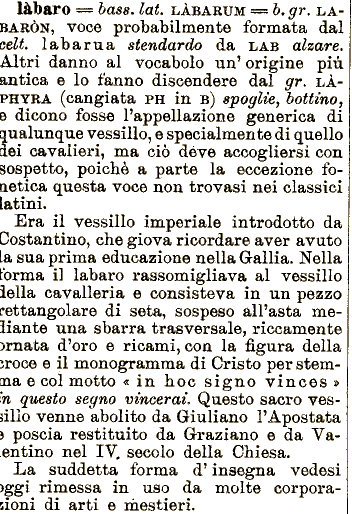 làbaro = bass. lat. LÀBARUM = b. gr. LA-
BARÒN, voce probabilmente formata dal
celt. labarua stendardo da LAB alzare.
Altri danno al vocabolo un' origine più
antica e lo fanno discendere dal gr. LÀ-
PHYRA (cangiata PH in B) spoglie, bottino,
e dicono fosse l'appellazione generica di
qualunque vessillo, e specialmente di quello
dei cavalieri, ma ciò deve accogliersi con
sospetto, poichè a parte la eccezione fo-
netica questa voce non trovasi nei classici
latini.
Era il vessillo imperiale introdotto da
Costantino, che giova ricordare aver avuto
la sua prima educazione nella Gallia. Nella
forma il labaro rassomigliava al vessillo
della cavalleria e consisteva in un pezzo
rettangolare di seta, sospeso all'asta me-
diante una sbarra trasversale, riccamente
ornata d'oro e ricami, con la figura della
croce e il monogramma di Cristo per stem-
ma e col motto « in hoc signo vinces »
in questo segno vincerai. Questo sacro ves-
sillo venne abolito da Giuliano l'Apostata
e poscia restituito da Graziano e da Va-
lentino nel IV. secolo della Chiesa.
La suddetta forma d' insegna vedesi
oggi rimessa in uso da molte corpora-
zioni di arti e mestieri.